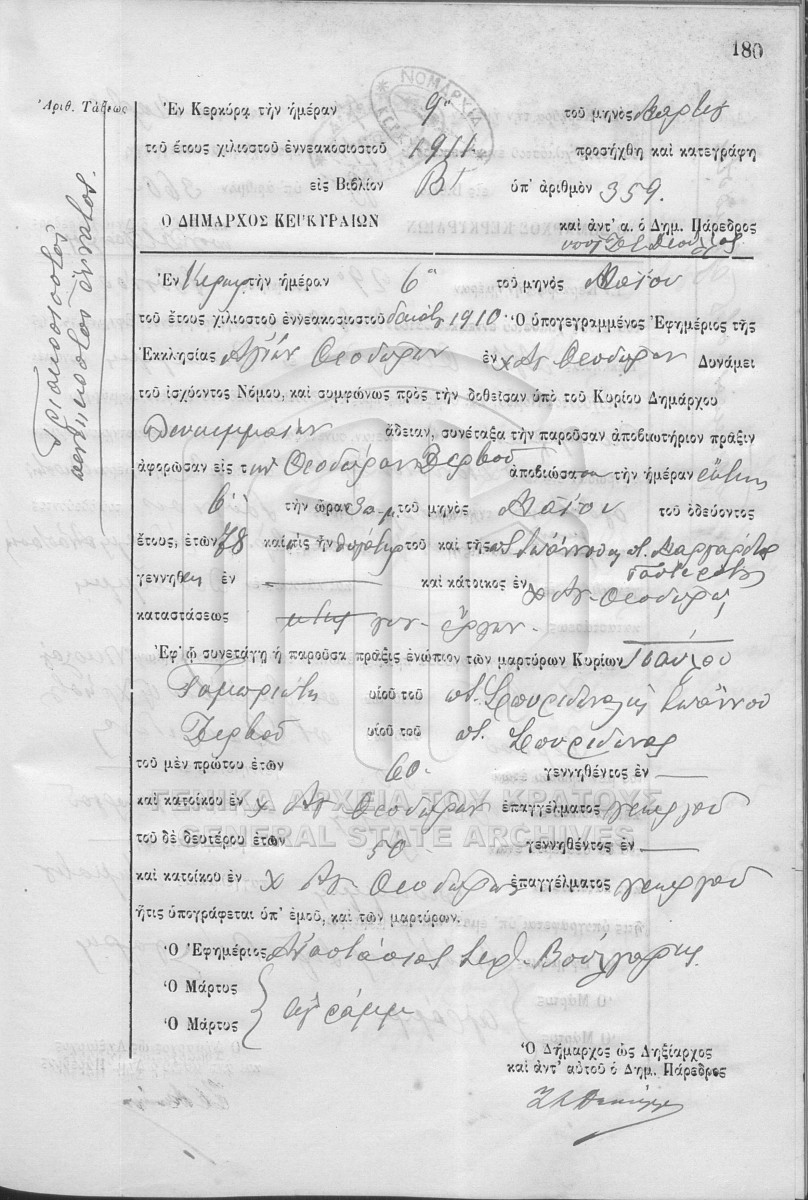 180
Ἀριθ. Τάξεως
Τριακοσιοστὸν
πεντηκοστὸν ἔννατον.
ΝΟΜΑΡΧΙΑ
Ἐν Κερκύρᾳ τὴν ἡμέραν 9ην τοῦ μηνὸς
τοῦ ἔτους χιλιοστοῦ ἐννεακοσιοστοῦ 1911 προσήχθη καὶ κατεγράφη
εἰς Βιβλίον ΒΓ ὑπ' ἀριθμὸν 359.
Ο ΔΗΜΑΡΧΟΣ ΚΕΡΚΥΡΑΙΩΝ καὶ ἀντ' α. ὁ Δημ. Πάρεδρος
Ἐν τὴν ἡμέραν 6η τοῦ μηνὸς Μαΐου
τοῦ ἔτους χιλιοστοῦ ἐννεακοσιοστοῦ δεκάτου 1910. Ὁ ὑπογεγραμμένος Ἐφημέριος τῆς
Ἐκκλησίας Ἁγίων Θεοδώρων ἐν χ Ἁγ Θεοδώρων Δυνάμει
τοῦ ἰσχύοντος Νόμου, καὶ συμφώνως πρὸς τὴν δοθεῖσαν ὑπὸ τοῦ Κυρίου Δημάρχου
Λευκιμμαίων ἄδειαν, συνέταξα τὴν παροῦσαν ἀποβιωτήριον πρᾶξιν
ἀφορῶσαν εἰς τὴν Θεοδώραν Ζερβοῦ ἀποβιώσασαν τὴν ἡμέραν
6 τὴν ὥραν 3 π.μ. τοῦ μηνὸς Μαΐου τοῦ ὁδεύοντος
ἔτους, ἐτῶν 78 καὶ τις ἦν θυγάτηρ τοῦ καὶ τῆς ποτ Ἰωάννου κ ποτ. Μαργαρίτας
γεννηθεῖσα ἐν — καὶ κάτοικος ἐν χ Ἁγ. Θεοδώρων
καταστάσεως
Ἐφ' ᾧ συνετάγη ἡ παροῦσα πρᾶξις ἐνώπιον τῶν μαρτύρων Κυρίων
υἱοῦ τοῦ ποτ. Σπυρίδωνος κ Ἰωάννου
Ζερβοῦ υἱοῦ τοῦ ποτ. Σπυρίδωνος
τοῦ μὲν πρώτου ἐτῶν 60. γεννηθέντος ἐν —
καὶ κατοίκου ἐν χ Ἁγ Θεοδώρων ἐπαγγέλματος γεωργοῦ
τοῦ δὲ δευτέρου ἐτῶν 50 γεννηθέντος ἐν —
καὶ κατοίκου ἐν χ Ἁγ. Θεοδώρων ἐπαγγέλματος γεωργοῦ
ἥτις ὑπογράφεται ὑπ' ἐμοῦ, καὶ τῶν μαρτύρων.
Ὁ Ἐφημέριος Ἀναστάσιος Ἱερ. Βούλγαρης
Ὁ Μάρτυς
Ὁ Μάρτυς ἀγράμμ
Ὁ Δήμαρχος ὡς Ληξίαρχος
καὶ ἀντ' αὐτοῦ ὁ Δημ. Πάρεδρος
ΓΕΝΙΚΑ ΑΡΧΕΙΑ ΤΟΥ ΚΡΑΤΟΥΣ
GENERAL STATE ARCHIVES